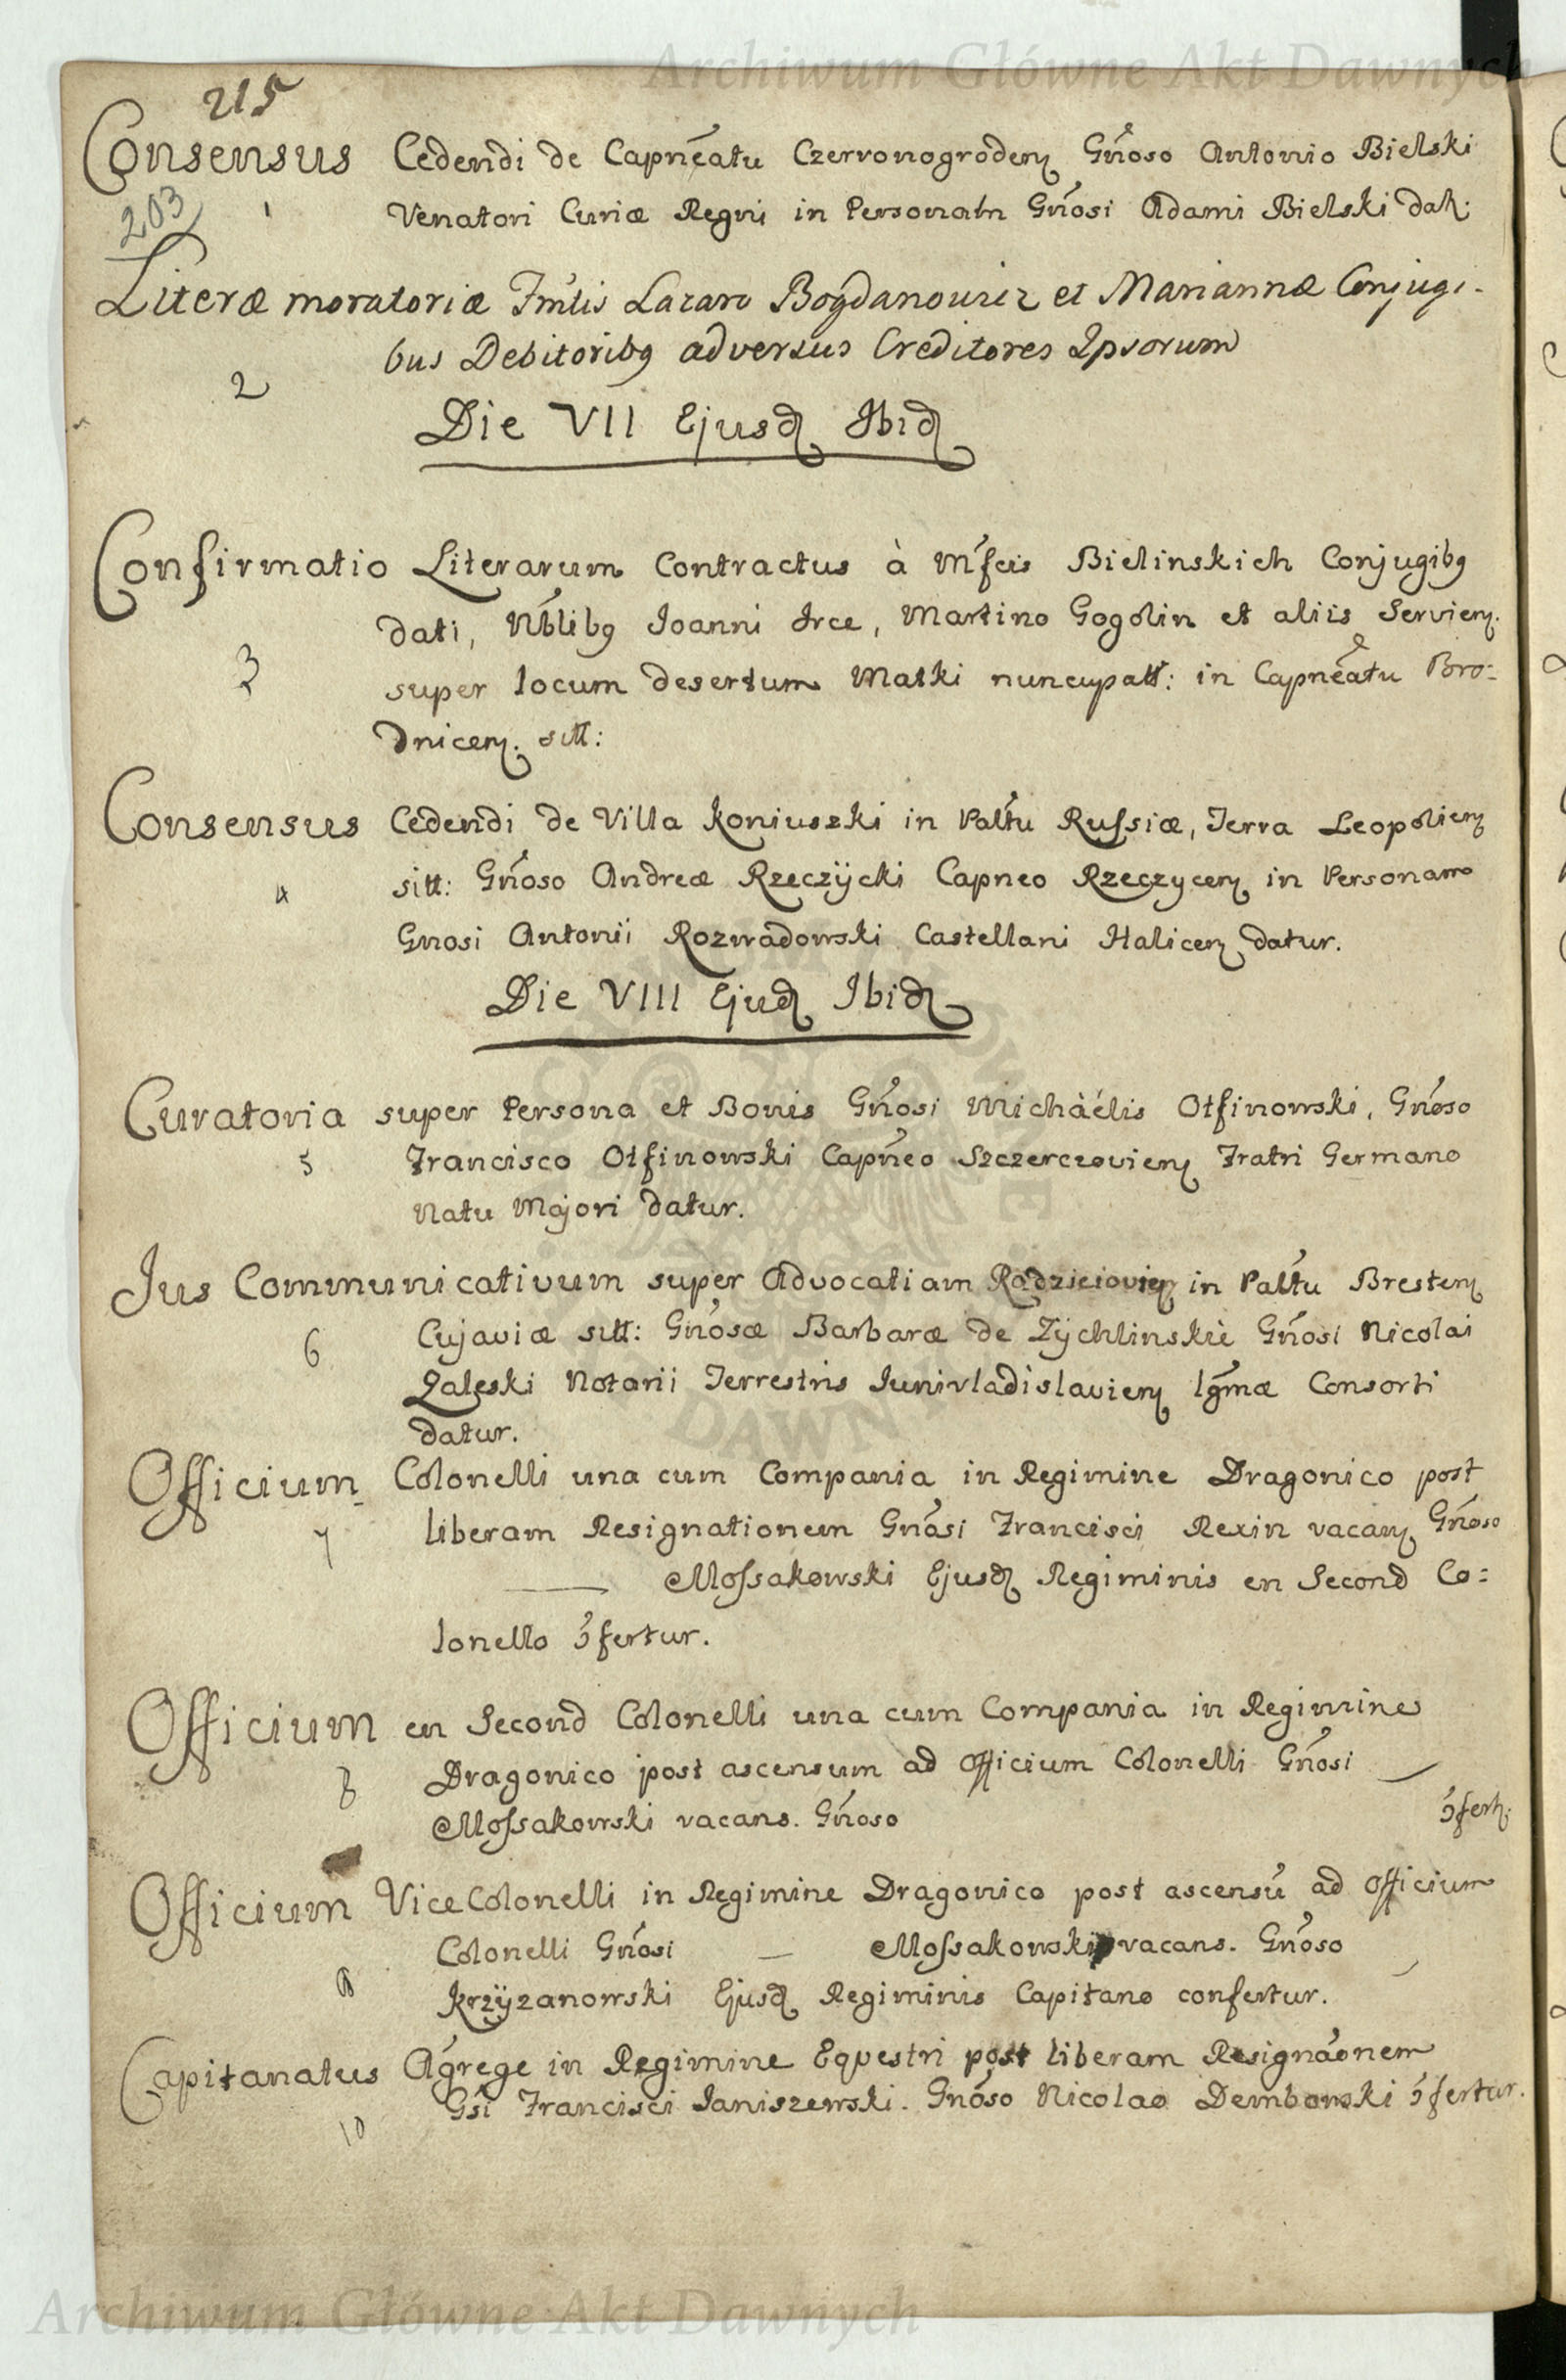 Archiwum Główne Akt Dawnych
215
Consensus Cedendi de Capnéatu Czerwonogroden Gnoso Antonio Bielski
203 1 Venatori Curiæ Regni in Personam Gnosi Adami Bielski dat:
Literæ moratoriæ Fmlis Lazaro Bogdanowicz et Mariannæ Conjugi-
bus Debitoribg adversus Creditores Ipsorum
2
Die VII Ejusd Ibid
Confirmatio Literarum Contractus à Mfcis Bielinskich Conjugibg
dati, Nblibg Ioanni Irce, Martino Gogolin et aliis Servien.
3 super locum desertum Matki nuncupatt: in Capnéatu Bro-
dnicen. sitt:
Consensus Cedendi de Villa Koniuszki in Paltu Russiæ, Terra Leopolien
4 sitt: Gnoso Andreæ Rzeczÿcki Capneo Rzeczycen in Personam
Gnosi Antonii Rozwadowski Castellani Halicen datur.
Die VIII Ejud Ibid
Curatoria super Persona et Bonis Gnosi Michaélis Otfinowski, Gnoso
5 Francisco Otfinowski Capneo Szczerczovien Fratri Germano
Natu Majori datur.
Jus Communicativum super Advocatiam Radziciovien in Paltu Bresten
6 Cujaviæ sitt: Gnosæ Barbaræ de Zÿchlinskie Gnosi Nicolai
Zaleski Notarii Terrestris Junivladislavien lgmæ Consorti
datur.
Officium Colonelli una cum Compania in Regimine Dragonico post
7 liberam Resignationem Gnosi Francisci Rexin vacan Gnoso
Mossakowski Ejusd Regiminis en Second Co=
lonello ɔfertur.
Officium en Second Colonelli una cum Compania in Regimine
8 Dragonico post ascensum ad officium Colonelli Gnosi
Mossakowski vacans. Gnoso ɔfert:
Officium Vice Colonelli in Regimine Dragonico post ascensu ad officium
Colonelli Gnosi Mossakowski vacans. Gnoso
9 Krzÿzanowski Ejusd Regiminis Capitano confertur.
Capitanatus Agrege in Regimine Equestri post liberam Resignaonem
10 Gsi Francisci Ianiszewski. Gnoso Nicolao Dembowski ɔfertur.
Archiwum Główne Akt Dawnych